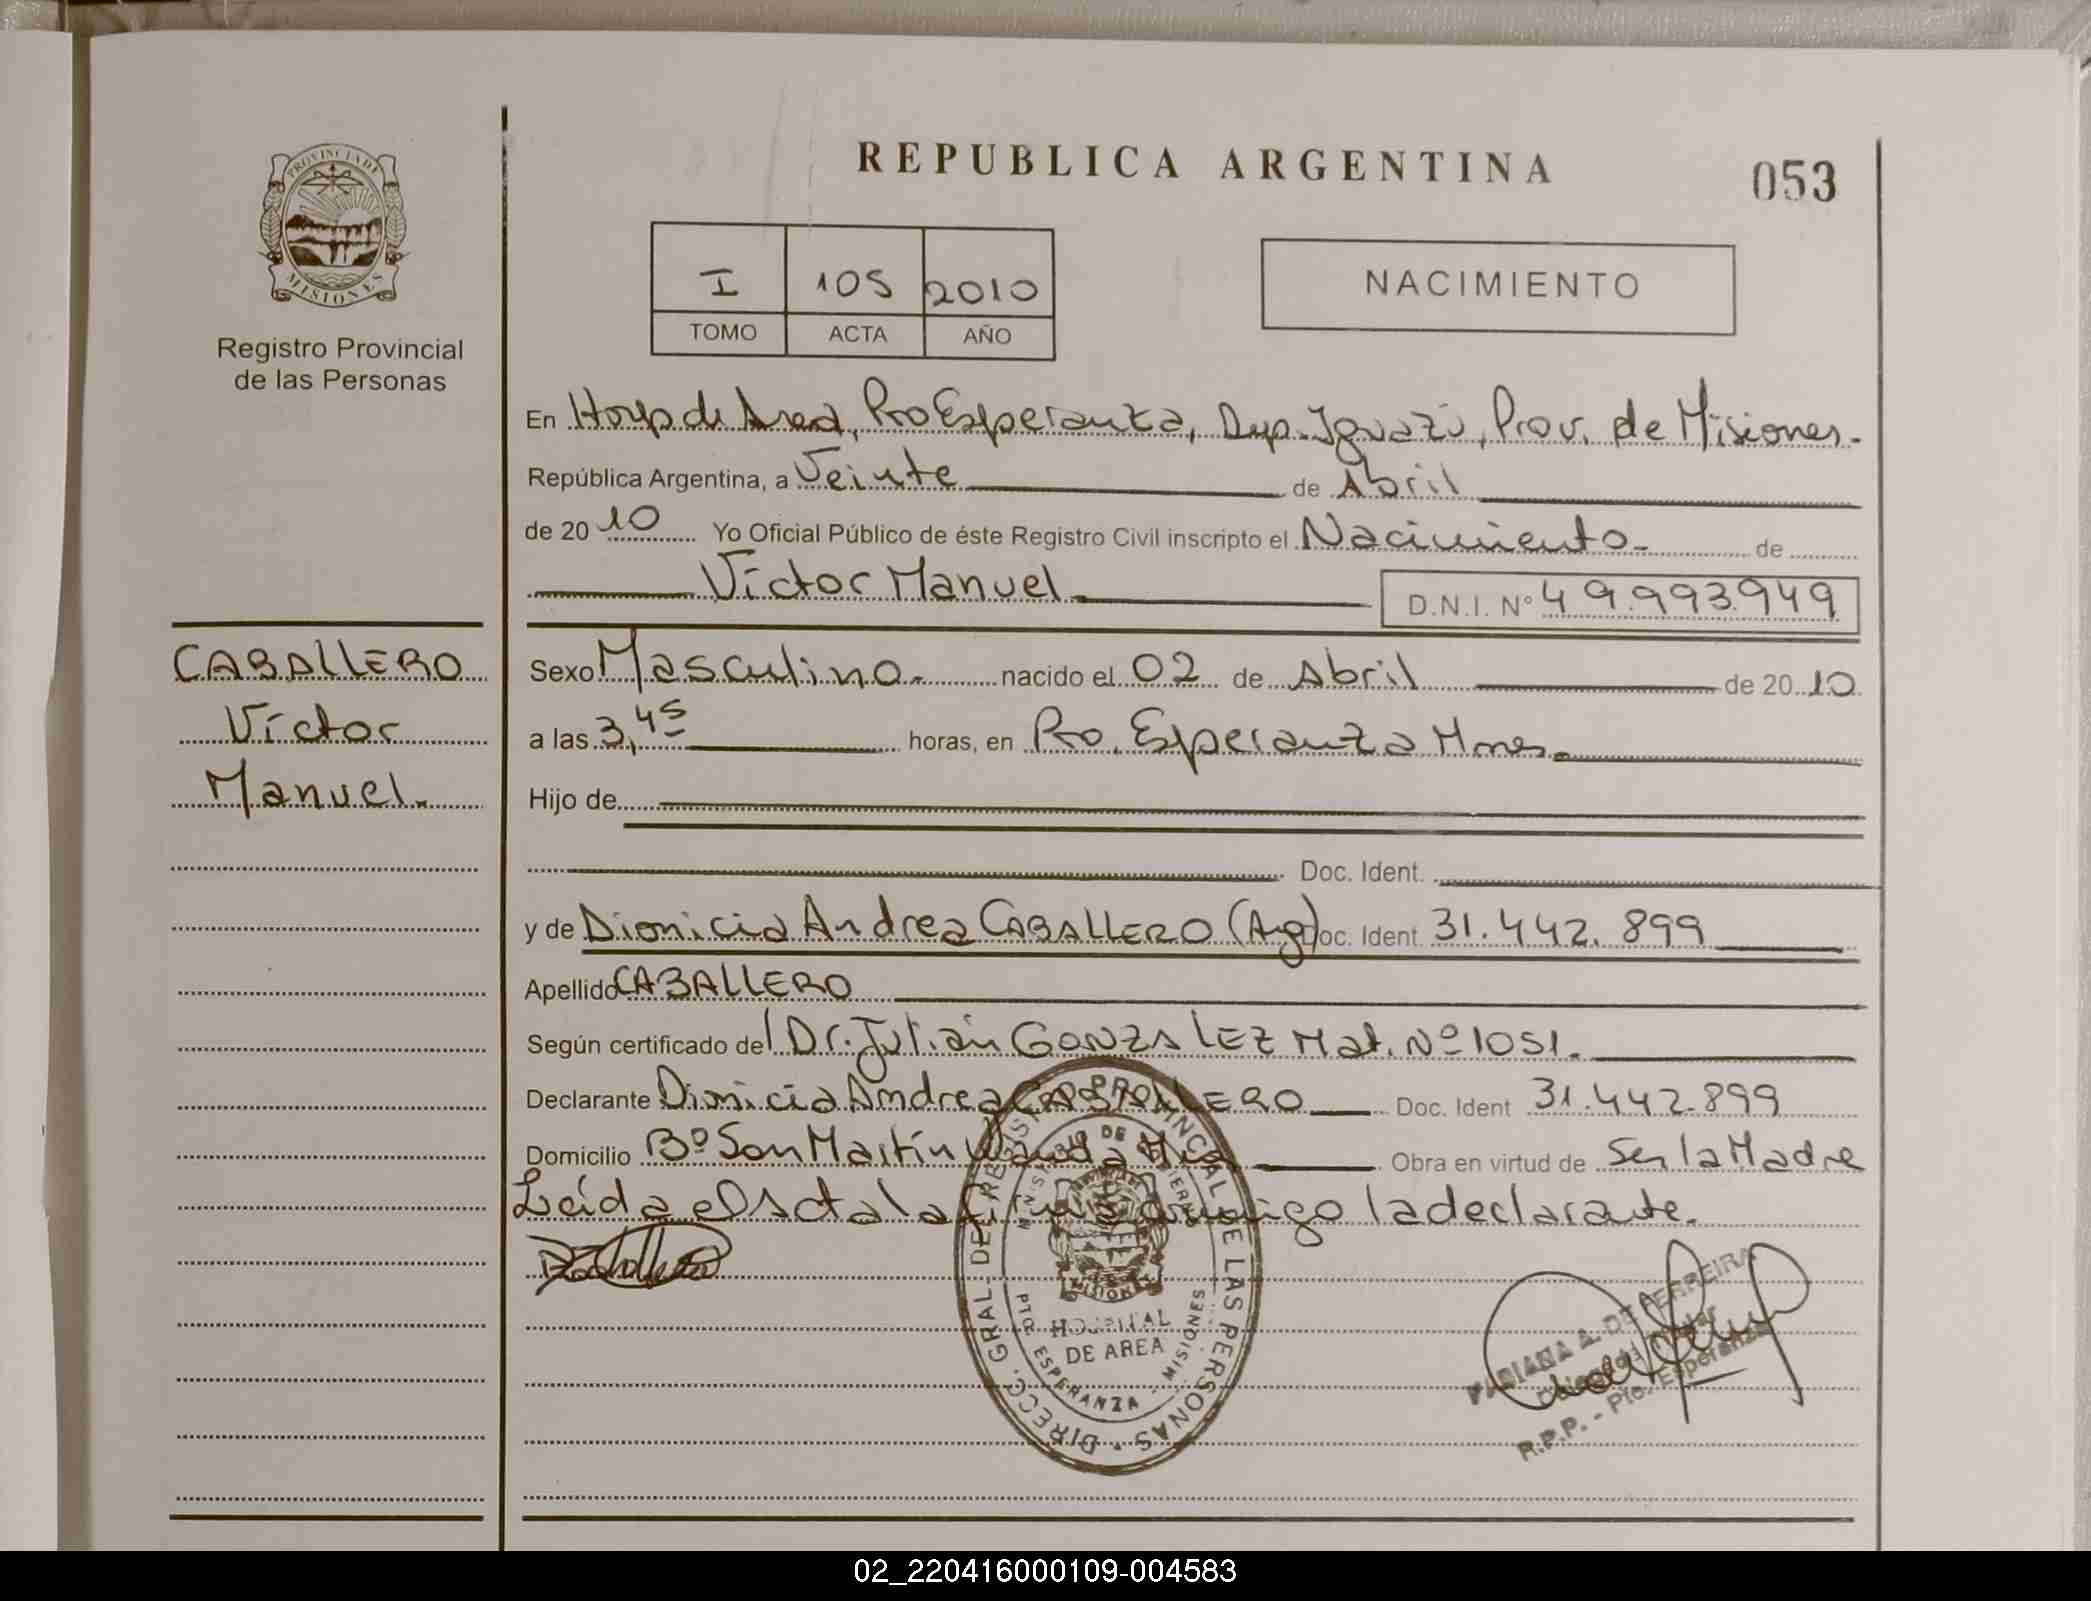 REPUBLICA ARGENTINA
053
PROVINCIA DE
MISIONES
Registro Provincial
de las Personas
I 105 2010
TOMO ACTA AÑO
NACIMIENTO
En Hosp de Area, Pto Esperanza, Dep. Iguazú, Prov. de Misiones.
República Argentina, a Veinte de Abril
de 2010 Yo Oficial Público de éste Registro Civil inscripto el Nacimiento. de
Víctor Manuel D.N.I. Nº 49.993.949
CABALLERO
Víctor
Manuel.
Sexo Masculino. nacido el 02 de Abril de 2010
a las 3,45 horas, en Pto. Esperanza Mnes.
Hijo de
Doc. Ident.
y de Dionicia Andrea CABALLERO (Arg) Doc. Ident 31.442.899
Apellido CABALLERO
Según certificado del Dr. Julián GONZALEZ Mat. Nº 1051.
Declarante Dionicia Andrea CABALLERO Doc. Ident 31.442.899
Domicilio Bº San Martín Wanda Obra en virtud de Ser la Madre
Leída el Acta la firma conmigo la declarante.
DIRECC. GRAL. DE REGISTRO PROVINCIAL DE LAS PERSONAS
MINISTERIO DE
MISIONES
HOSPITAL
DE AREA
PTO. ESPERANZA - MISIONES
A. DE FERREIRA
R.P.P. - Pto. Esperanza
02_220416000109-004583